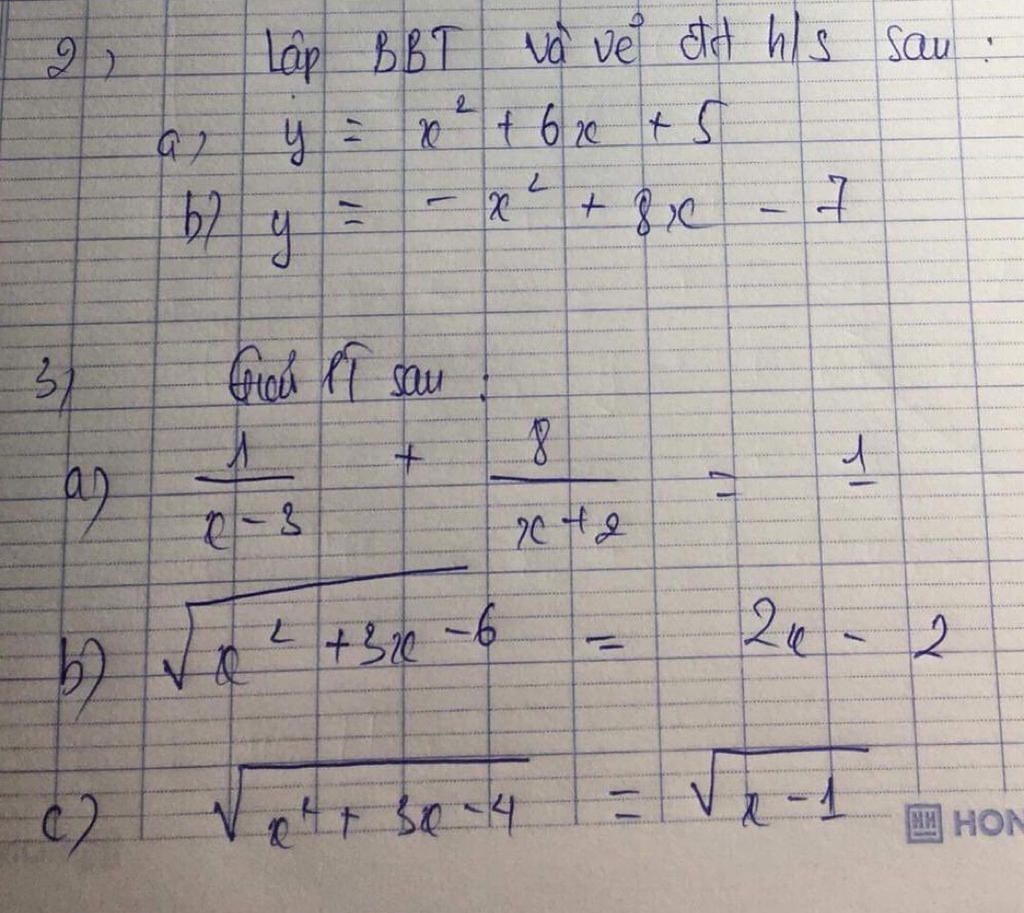 2, Lập BBT và vẽ đtt h/s sau :
a, y = x² + 6x + 5
b) y = - x² + 8x - 7
3) Giải PT sau :
a) 1/(x-3) + 8/(x+2) = 1
b) √(x² +3x -6) = 2x - 2
c) √(x⁴ + 3x -4) = √(x -1)
HON